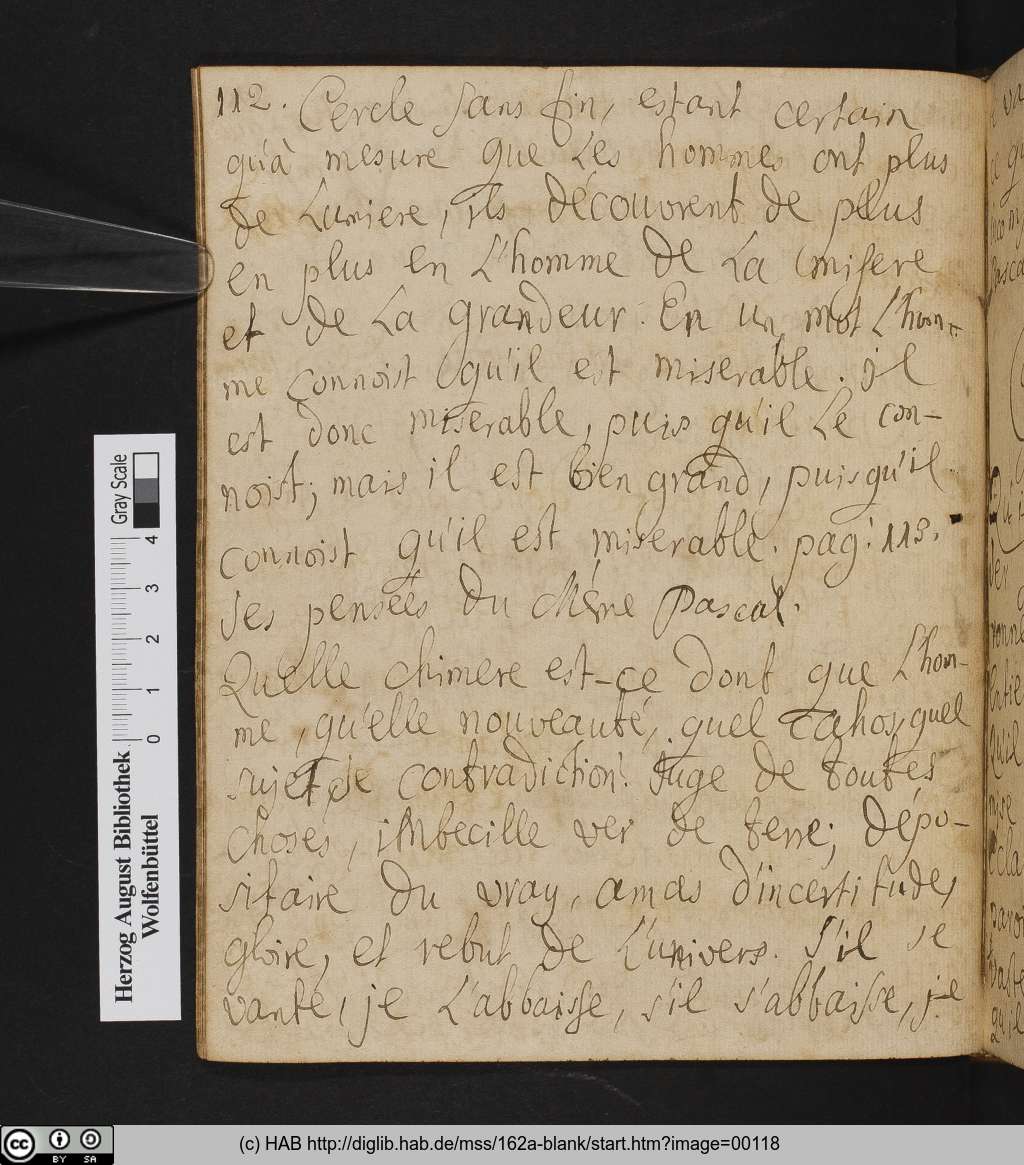 112. Cercle sans fin, estant certain
qu'à mesure que Les hommes ont plus
de Lumiere, ils découvrent de plus
en plus en L'homme de La misere
et de La grandeur. En un mot L'hom-
me connoist qu'il est miserable. il
est donc miserable, puis qu'il Le con-
noist; mais il est bien grand, puisqu'il
connoist qu'il est miserable. pag: 113.
des pensées du Même Pascal.
Quelle chimere est-ce dont que L'hom-
me, qu'elle nouveauté, quel Cahos, quel
sujet de contradiction! Juge de toutes
choses, imbecille ver de terre; dépo-
sitaire du vray, amas d'incertitude,
gloire, et rebut de L'univers. S'il se
vante, je L'abbaisse, s'il s'abbaisse, je
Gray Scale
0 1 2 3 4
Herzog August Bibliothek
Wolfenbüttel
cc BY SA
(c) HAB http://diglib.hab.de/mss/162a-blank/start.htm?image=00118